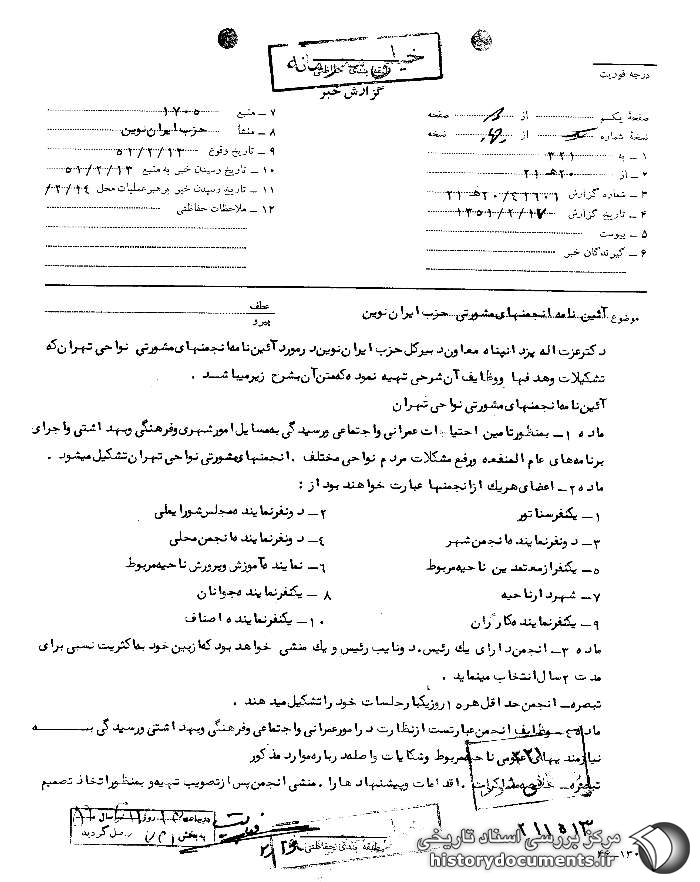 خیلی محرمانه
طبقه بندی حفاظتی
گزارش خبر
درجه فوریت
صفحهٔ یکم از صفحه
نسخهٔ شماره از نسخه
۱ ـ به ۳۲۱
۲ ـ از ۲۰ هـ ۲۱
۳ ـ شماره گزارش ۲۰/۴۲۶۰۱ هـ ۲۱
۴ ـ تاریخ گزارش ۱۳۵۱/۲/۱۷
۵ ـ پیوست
۶ ـ گیرندگان خبر
۷ ـ منبع ۱۷۰۵
۸ ـ منشأ حزب ایران نوین
۹ ـ تاریخ وقوع ۵۱/۲/۱۳
۱۰ ـ تاریخ رسیدن خبر به منبع ۵۱/۲/۱۳
۱۱ ـ تاریخ رسیدن خبر برهبر عملیات محل ۲/۱۴/
۱۲ ـ ملاحظات حفاظتی
موضوع آئین نامه انجمنهای مشورتی حزب ایران نوین
عطف
پیرو
دکتر عزت اله یزدانپناه معاون دبیر کل حزب ایران نوین در مورد آئین نامه انجمنهای مشورتی نواحی تهران که
تشکیلات و هدفها و وظایف آن شرحی تهیه نموده که متن آن بشرح زیر میباشد .
آئین نامه انجمنهای مشورتی نواحی تهران
ماده ۱ ـ بمنظور تامین احتیاجات عمرانی و اجتماعی و رسیدگی به مسایل امور شهری و فرهنگی و بهداشتی و اجرای
برنامه های عام المنفعه و رفع مشکلات مردم نواحی مختلف . انجمنهای مشورتی نواحی تهران تشکیل میشود .
ماده ۲ ـ اعضای هر یك از انجمنها عبارت خواهند بود از :
۱ ـ یکنفر سناتور ۲ ـ دو نفر نماینده مجلس شورایملی
۳ ـ دو نفر نماینده انجمن شهر ۴ ـ دو نفر نماینده انجمن محلی
۵ ـ یکنفر از معتمدین ناحیه مربوط ۶ ـ نماینده آموزش و پرورش ناحیه مربوط
۷ ـ شهردار ناحیه ۸ ـ یکنفر نماینده جوانان
۹ ـ یکنفر نماینده کارگران ۱۰ ـ یکنفر نماینده اصناف
ماده ۳ ـ انجمن دارای یك رئیس . دو نایب رئیس و یك منشی خواهد بود که از بین خود به اکثریت نسبی برای
مدت ۲ سال انتخاب مینماید .
تبصره ـ انجمن حداقل هر ۱۰ روز یکبار جلسات خود را تشکیل میدهند .
ماده ۴ ـ وظایف انجمن عبارتست از نظارت در امور عمرانی و اجتماعی و فرهنگی و بهداشتی و رسیدگی به
نیازمندیهای عمومی ناحیه مربوط و شکایات واصله درباره موارد مذکور
تبصره ـ خلاصه مذاکرات . اقدامات و پیشنهادها را . منشی انجمن پس از تصویب تهیه و بمنظور اتخاذ تصمیم
۳۲۱
۲۱۱۵۱۳
طبقه بندی حفاظتی
مرکز بررسی اسناد تاریخی
historydocuments.ir